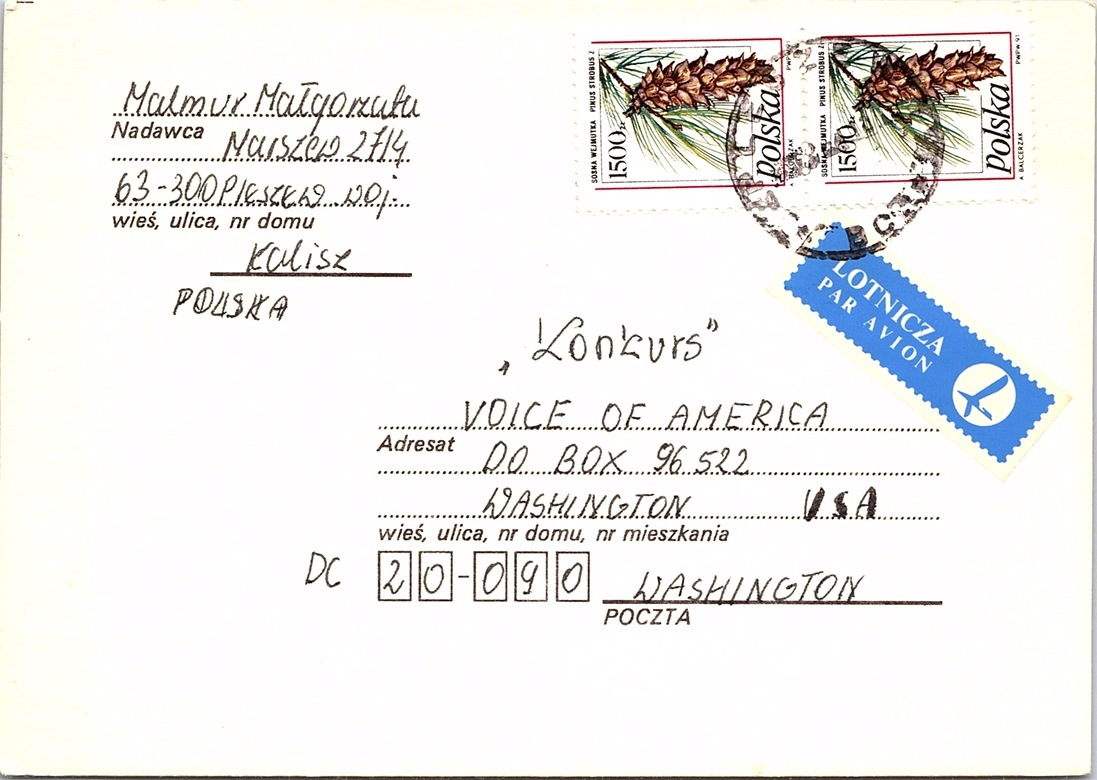 Malmur Małgorzata
Nadawca
Marszew 27/4
63-300 Pleszew woj.
wieś, ulica, nr domu
Kalisz
POLSKA
SOSNA WEJMUTKA PINUS STROBUS
1500 zł
Polska
A. BALCERZAK
PWPW
SOSNA WEJMUTKA PINUS STROBUS
1500 zł
Polska
A. BALCERZAK
PWPW 91
LOTNICZA
PAR AVION
„Konkurs”
VOICE OF AMERICA
Adresat
PO BOX 96 522
WASHINGTON USA
wieś, ulica, nr domu, nr mieszkania
DC 20-090 WASHINGTON
POCZTA